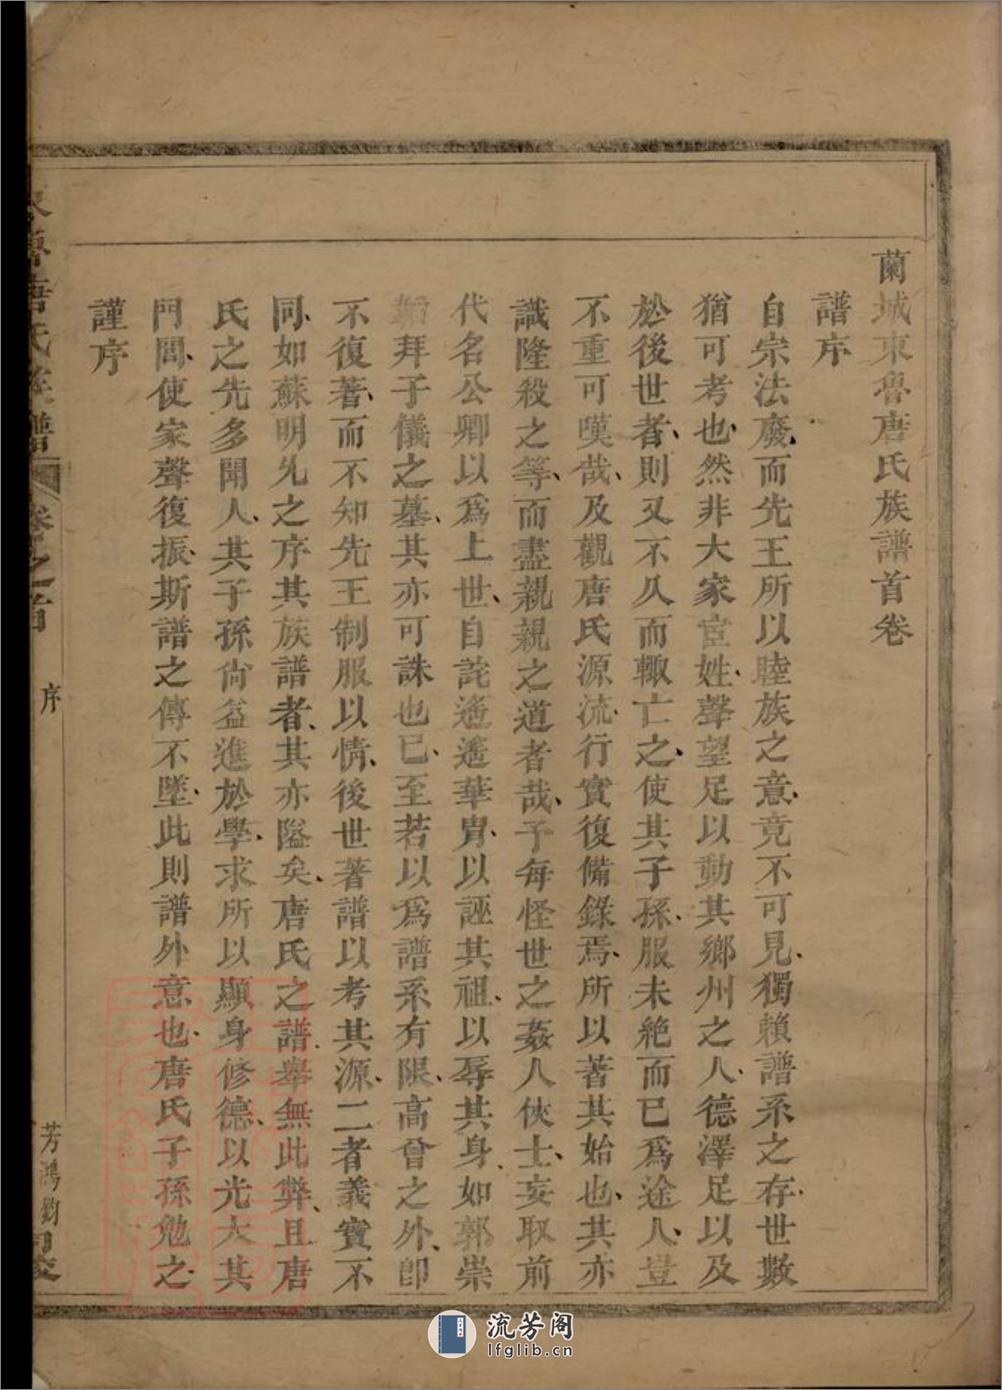 蘭城東魯唐氏族譜首卷
譜序
自宗法廢而先王所以睦族之意竟不可見獨賴譜系之存世數
猶可考也然非大家宦姓聲望足以動其鄉州之人德澤足以及
於後世者則又不久而輙亡之使其子孫服未絶而已爲途人豈
不重可嘆哉及觀唐氏源流行實復備錄焉所以著其始也其亦
識隆殺之等而盡親親之道者哉予每怪世之姦人俠士妄取前
代名公卿以爲上世自詫遙遙華冑以誣其祖以辱其身如郭崇
韜拜子儀之墓其亦可誅也已至若以爲譜系有限高曾之外卽
不復著而不知先王制服以情後世著譜以考其源二者義實不
同如蘇明允之序其族譜者其亦隘矣唐氏之譜舉無此弊且唐
氏之先多聞人其子孫尙益進於學求所以顯身修德以光大其
門閭使家聲復振斯譜之傳不墜此則譜外意也唐氏子孫勉之
謹序
東魯唐氏族譜 卷之首 序 芳鴻鈞
流芳阁
lfglib.cn